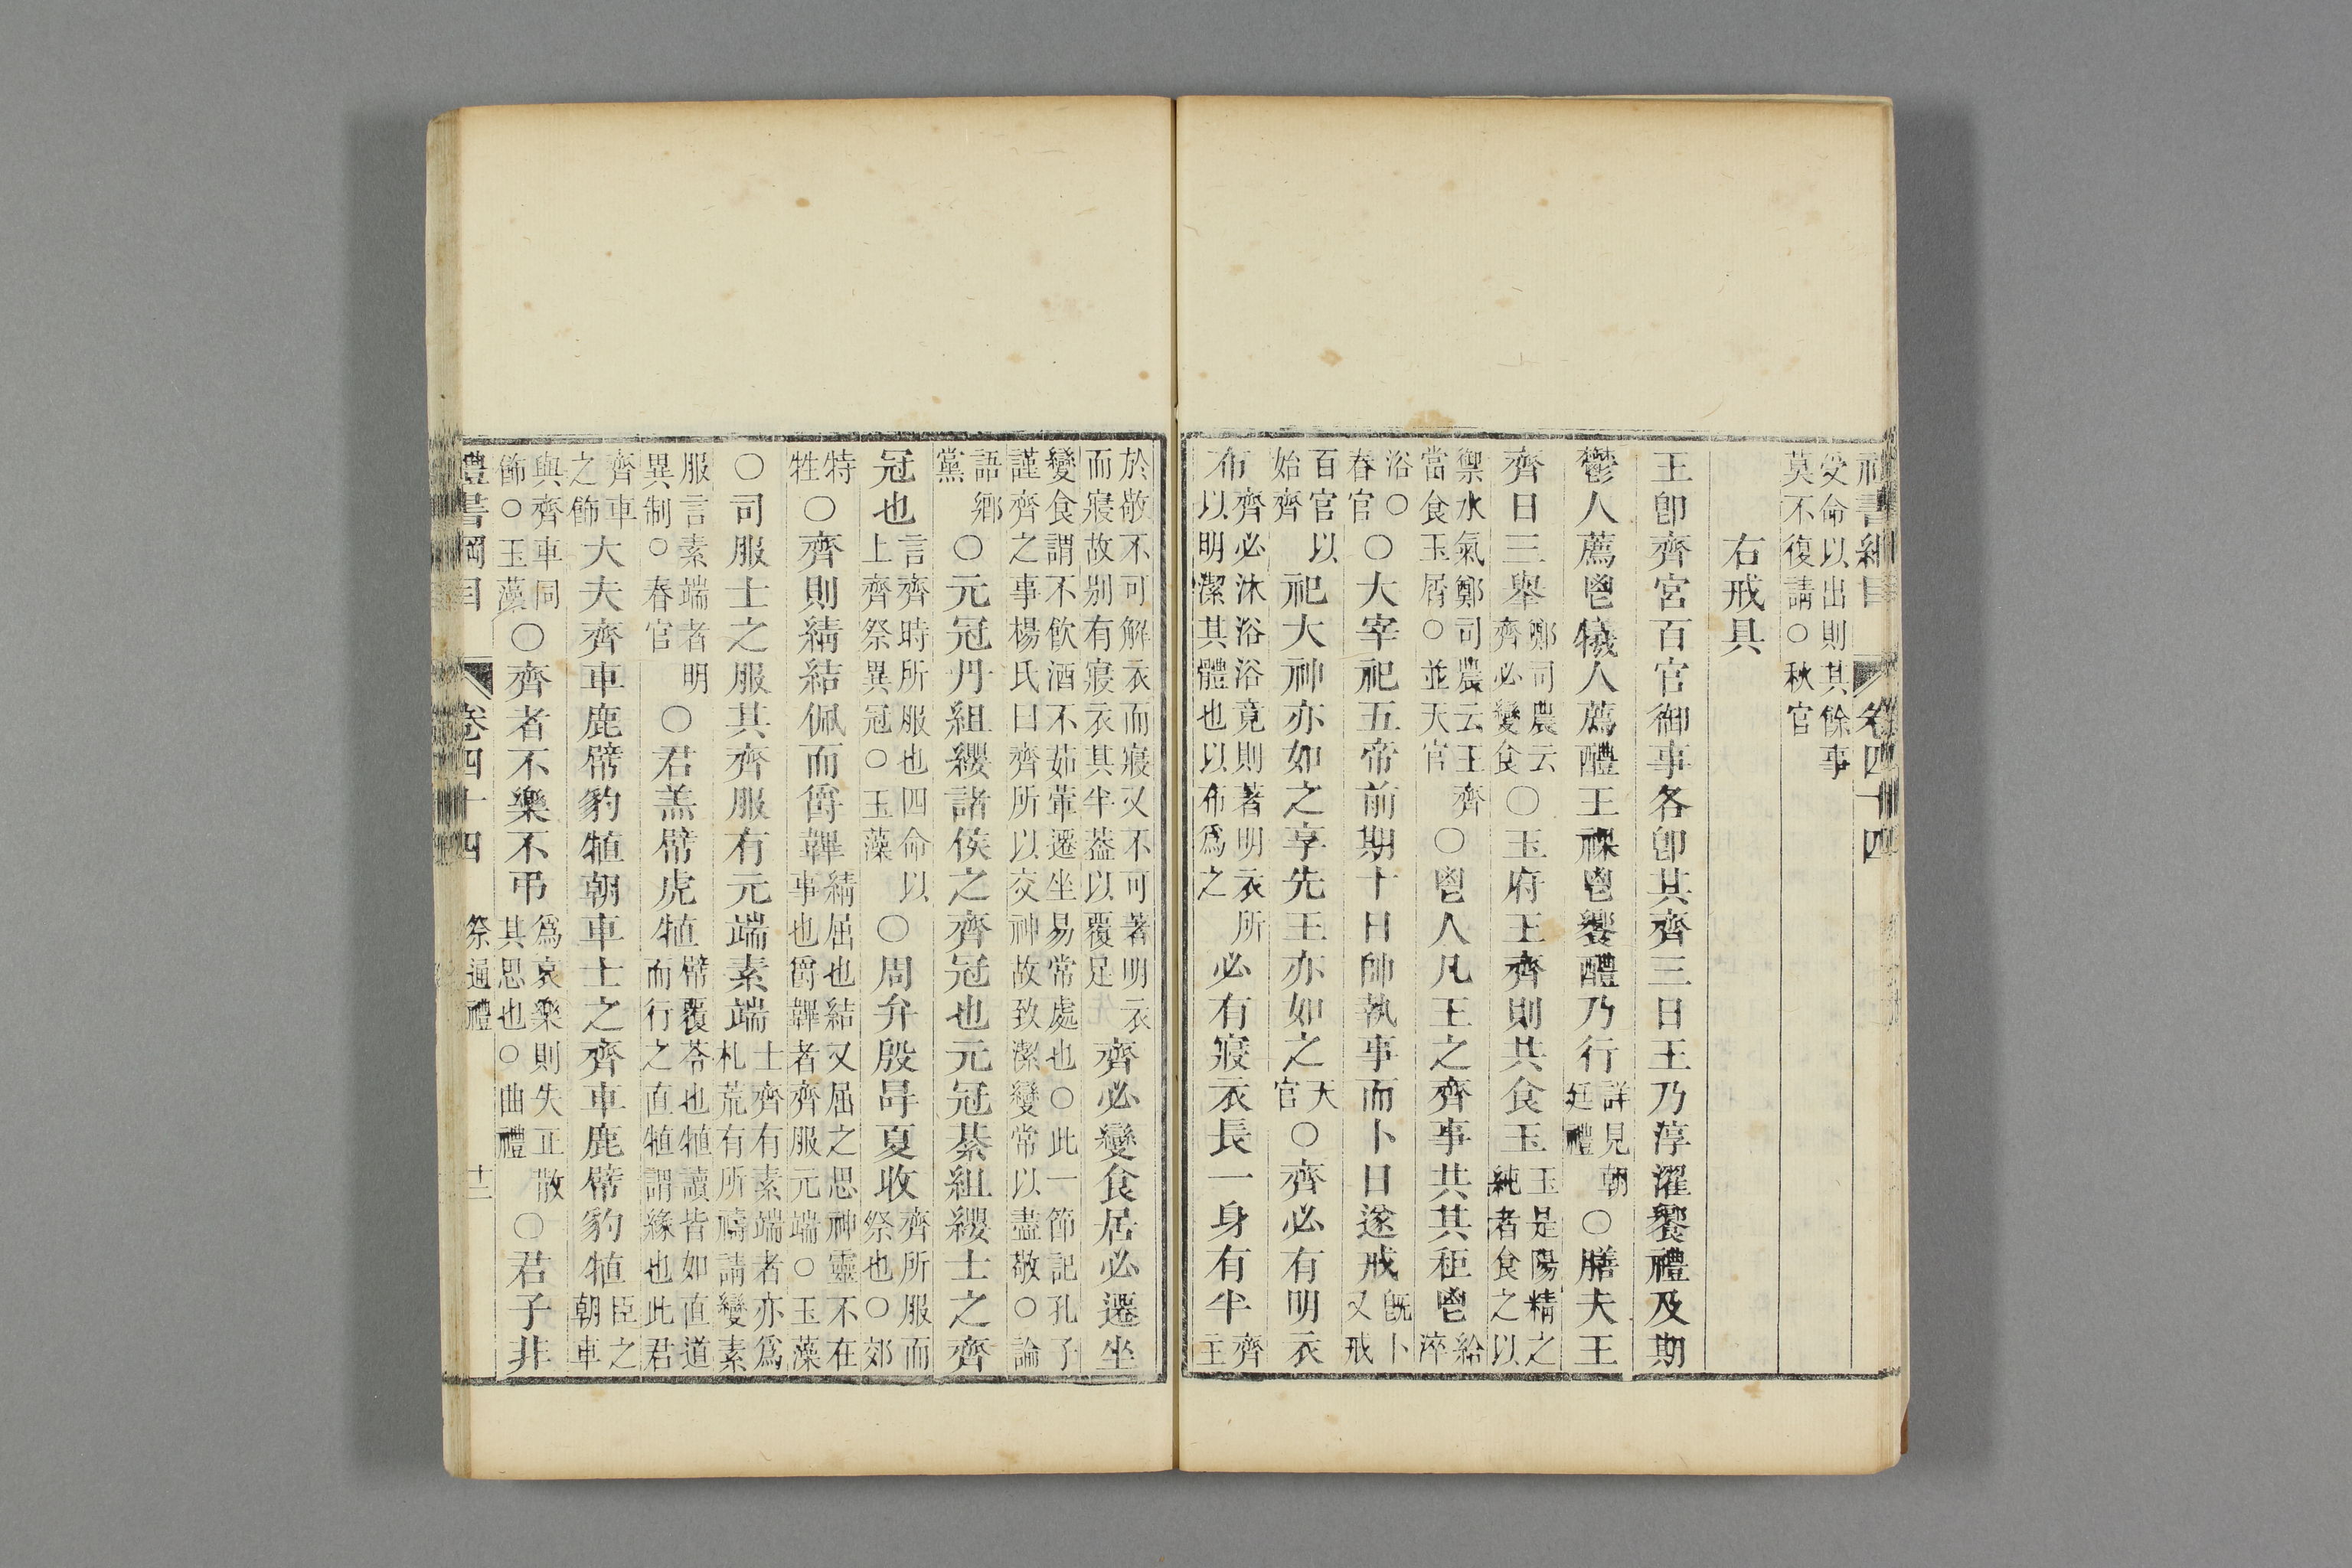 禮書綱目 卷四十四
受命以出則其餘事
莫不復請○秋官
右戒具
王卽齊宮百官御事各卽其齊三日王乃淳濯饗禮及期
鬱人薦鬯犧人薦醴王祼鬯饗醴乃行詳見朝廷禮○膳夫王
齊日三舉鄭司農云齊必變食○玉府王齊則共食玉玉是陽精之純者食之以
禦水氣鄭司農云王齊當食玉屑○並天官○鬯人凡王之齊事共其秬鬯給淬
浴○春官○大宰祀五帝前期十日帥執事而卜日遂戒旣卜又戒
百官以始齊祀大神亦如之享先王亦如之天官○齊必有明衣
布齊必沐浴浴竟則著明衣所以明潔其體也以布爲之必有寢衣長一身有半齊主
於敬不可解衣而寢又不可著明衣而寢故別有寢衣其半葢以覆足齊必變食居必遷坐
變食謂不飲酒不茹葷遷坐易常處也○此一節記孔子謹齊之事楊氏曰齊所以交神故致潔變常以盡敬○論
語鄕黨○元冠丹組纓諸侯之齊冠也元冠綦組纓士之齊
冠也言齊時所服也四命以上齊祭異冠○玉藻○周弁殷冔夏收齊所服而祭也○郊
特牲○齊則綪結佩而爵韠綪屈也結又屈之思神靈不在事也爵韠者齊服元端○玉藻
○司服士之服其齊服有元端素端士齊有素端者亦爲札荒有所禱請變素
服言素端者明異制○春官○君羔幦虎犆幦覆苓也犆讀皆如直道而行之直犆謂緣也此君
齊車之飾大夫齊車鹿幦豹犆朝車士之齊車鹿幦豹犆臣之朝車
與齊車同飾○玉藻○齊者不樂不弔爲哀樂則失正散其思也○曲禮○君子非
禮書綱目 卷四十四 祭通禮 十二